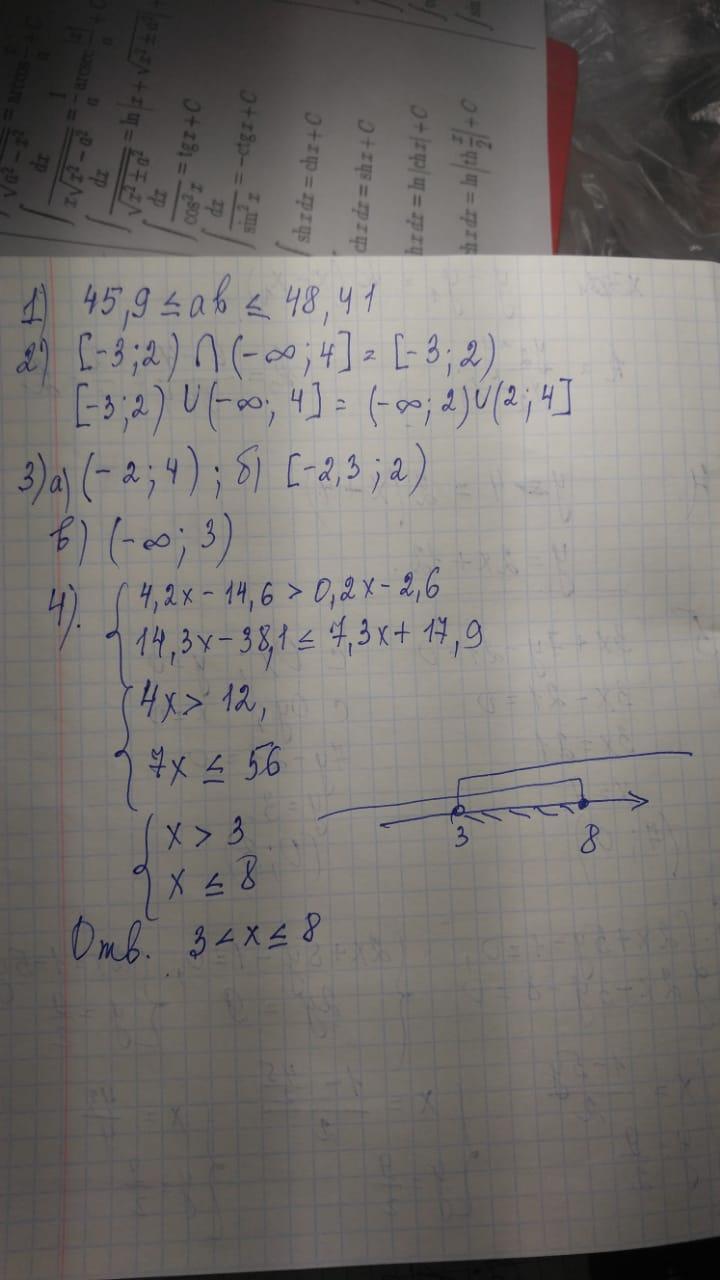 √a² − x² = arccos
∫ dx / x√x² − a² = 1/a arcsec
∫ dx / √x² ± a² = ln|x + √x² ± a²|
∫ dx / cos²x = tgx + C
∫ dx / sin²x = −ctgx + C
∫ shxdx = chx + C
chxdx = shx + C
hxdx = ln|chx| + C
hxdx = ln|th x/2| + C
1) 45,9 ≤ ab ≤ 48,41
2) [-3;2) ∩ (-∞; 4] = [-3; 2)
[-3;2) ∪ (-∞; 4] = (-∞; 2) ∪ (2; 4]
3) а) (-2; 4) ; б) [-2,3 ; 2)
в) (-∞; 3)
4). { 4,2x - 14,6 > 0,2x - 2,6
14,3x - 38,1 ≤ 7,3x + 17,9
{ 4x > 12,
7x ≤ 56
{ x > 3
x ≤ 8
3 8
Отв. 3 < x ≤ 8